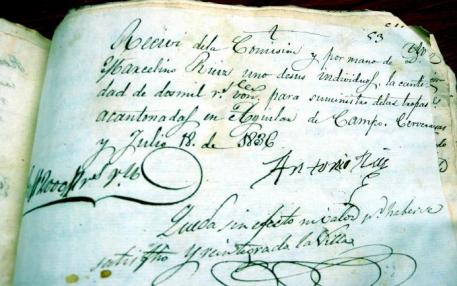 53
Recivi dela Comision y por mano de Dn
Marcelino Ruiz uno desus individuos, la canti
dad de dosmil rs. von, para suministro delas tropas
acantonadas en Aguilar de Campo. Cervera
y Julio 18. de 1836
Antonio Ruiz
Queda sin efecto ni valor pr. haberse
satisfho y reintegrada la Villa